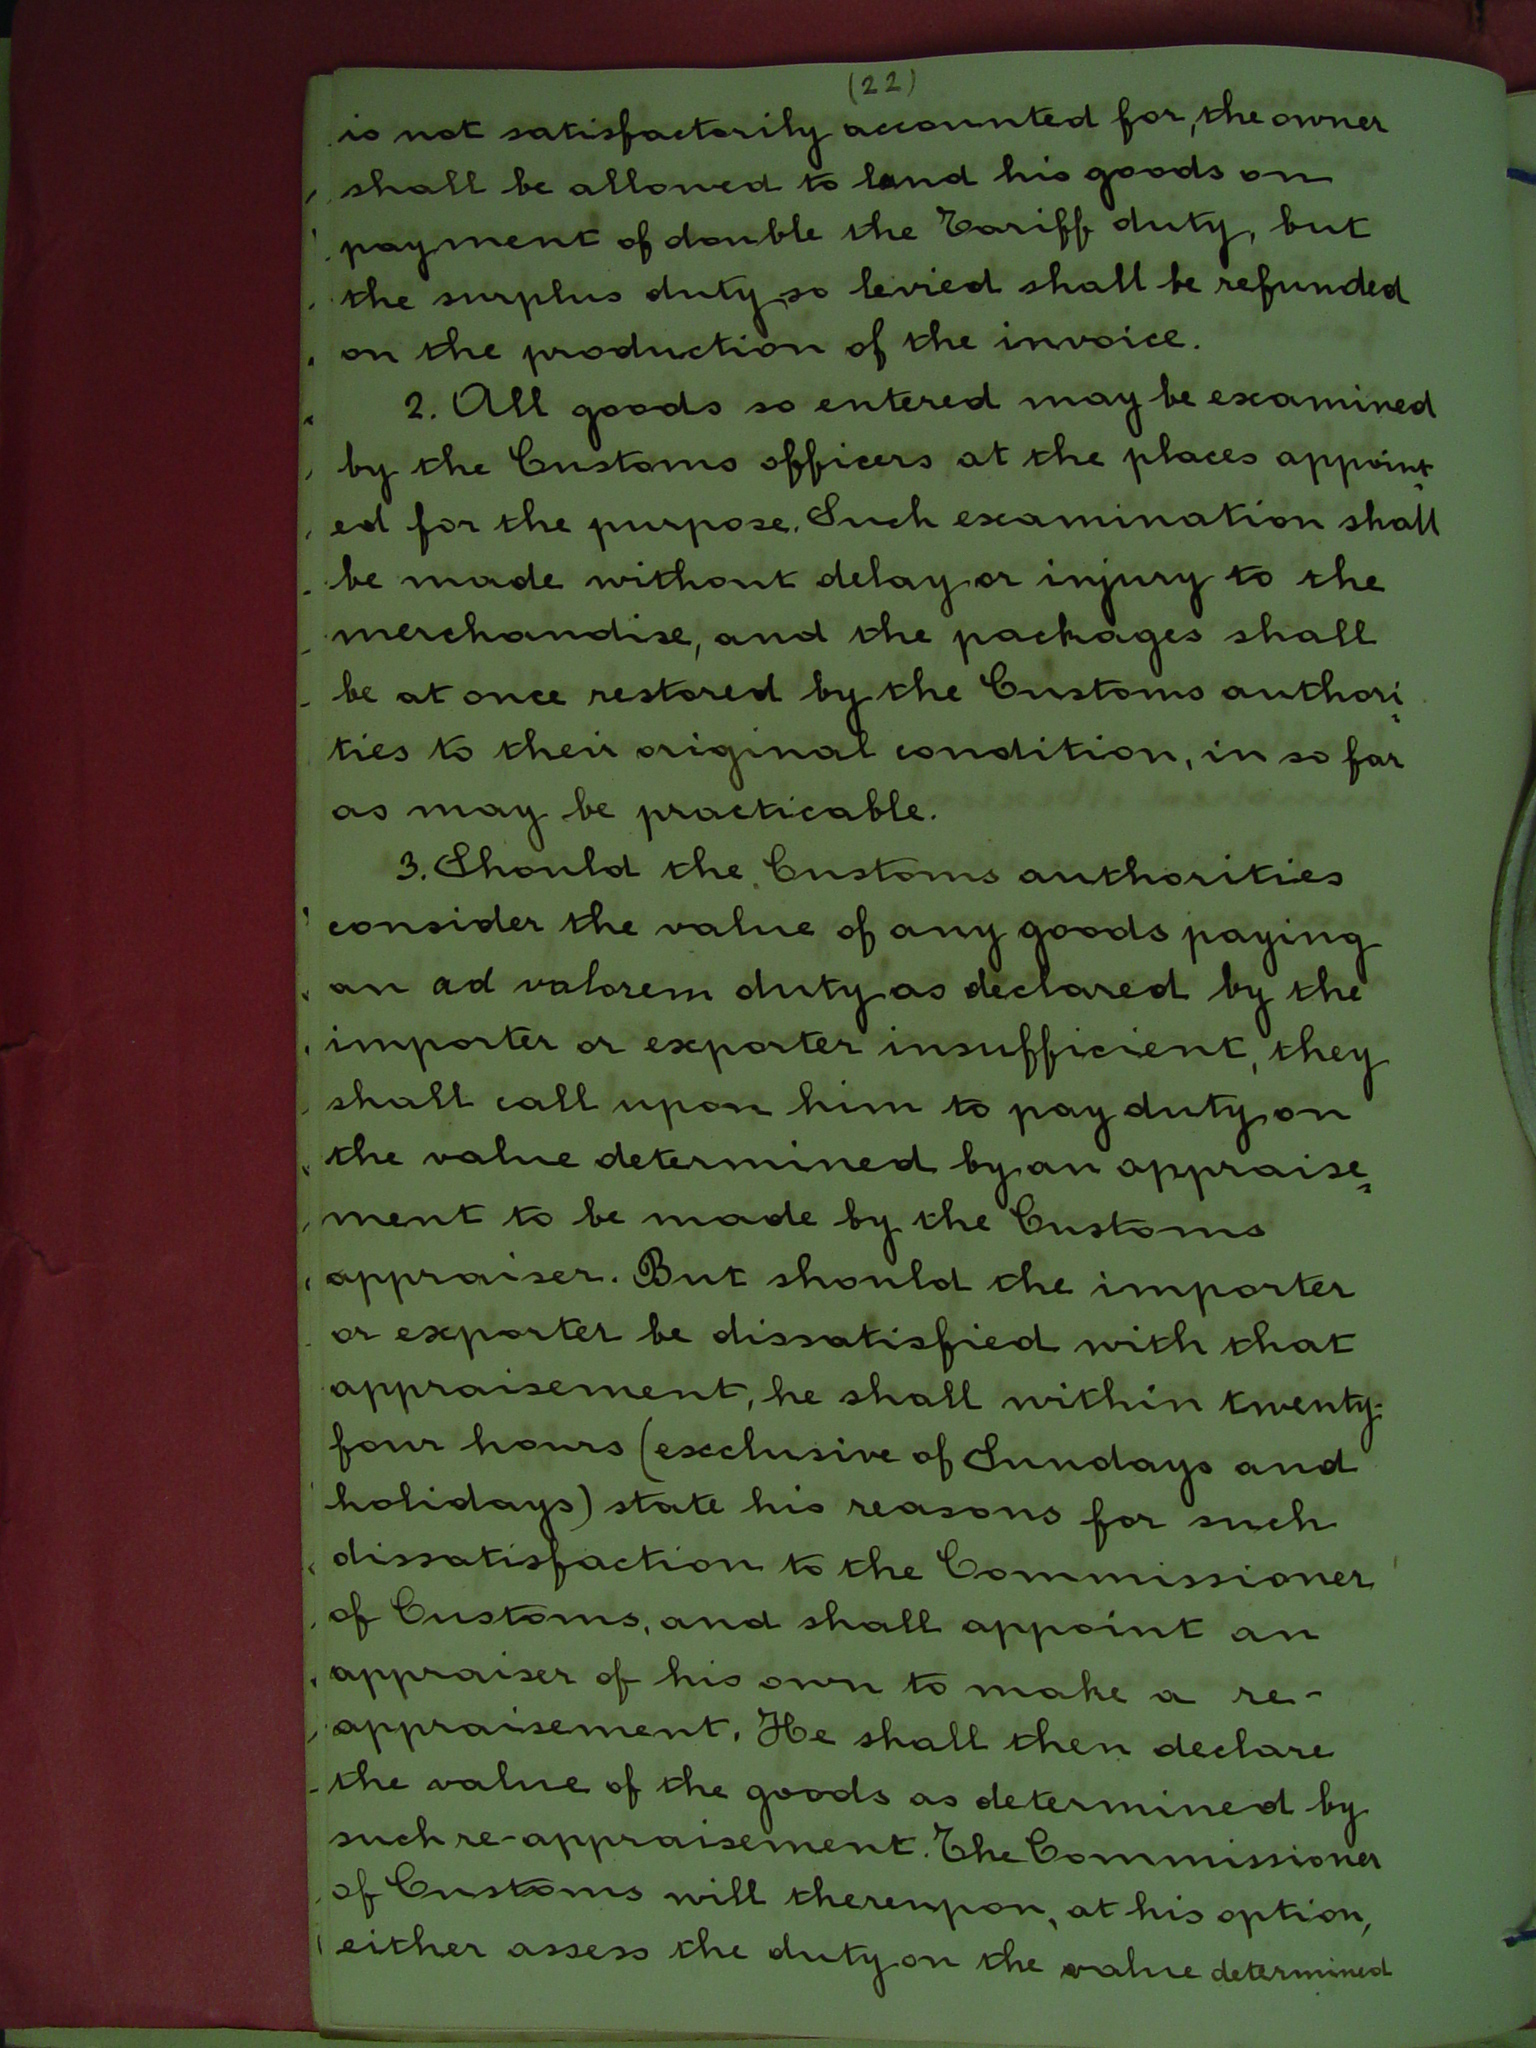 (22)
is not satisfactorily accounted for, the owner
shall be allowed to land his goods on
payment of double the Tariff duty, but
the surplus duty so levied shall be refunded
on the production of the invoice.
2. All goods so entered may be examined
by the Customs officers at the places appoint-
ed for the purpose. Such examination shall
be made without delay or injury to the
merchandise, and the packages shall
be at once restored by the Customs authori-
ties to their original condition, in so far
as may be practicable.
3. Should the Customs authorities
consider the value of any goods paying
an ad valorem duty as declared by the
importer or exporter insufficient, they
shall call upon him to pay duty on
the value determined by an appraise-
ment to be made by the Customs
appraiser. But should the importer
or exporter be dissatisfied with that
appraisement, he shall within twenty-
four hours (exclusive of Sundays and
holidays) state his reasons for such
dissatisfaction to the Commissioner
of Customs, and shall appoint an
appraiser of his own to make a re-
appraisement. He shall then declare
the value of the goods as determined by
such re-appraisement. The Commissioner
of Customs will thereupon, at his option,
either assess the duty on the value determined